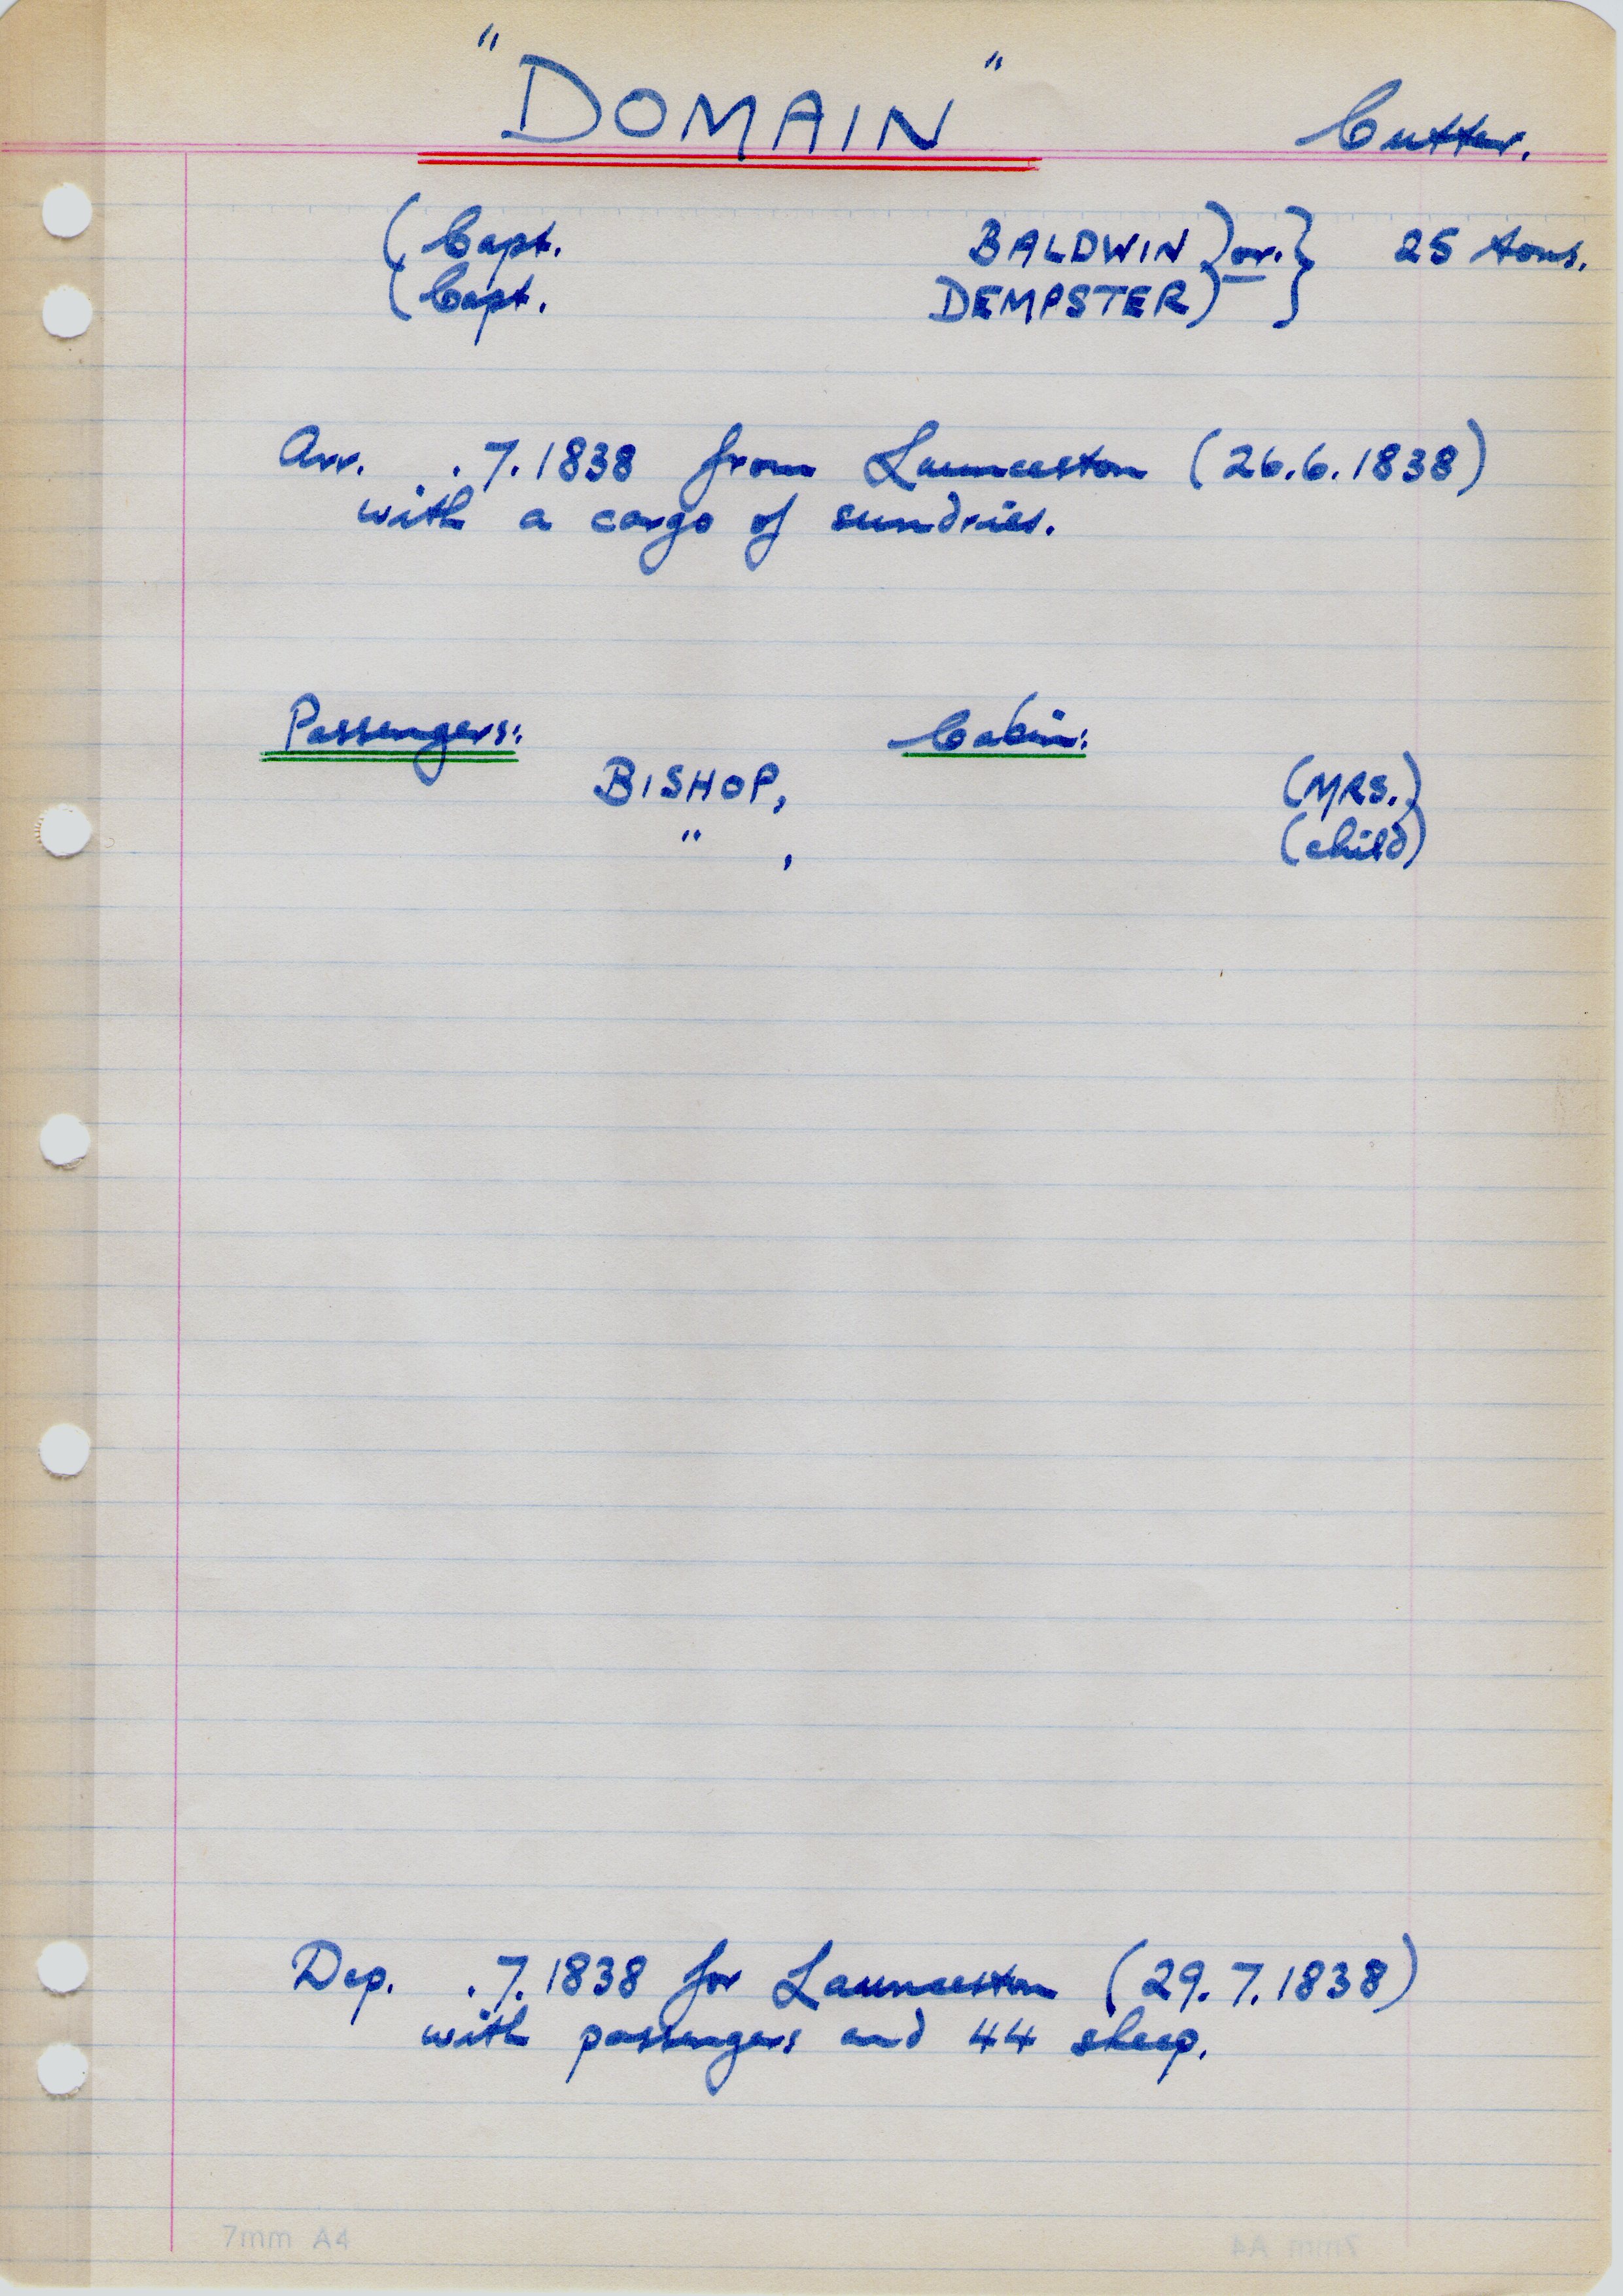 "DOMAIN" Cutter.
(Capt. BALDWIN) or. } 25 tons.
(Capt. DEMPSTER)
Arr. .7.1838 from Launceston (26.6.1838)
with a cargo of sundries.
Passengers: Cabin:
BISHOP, (MRS.)
" , (child)
Dep. .7.1838 for Launceston (29.7.1838)
with passengers and 44 sheep.
7mm A4